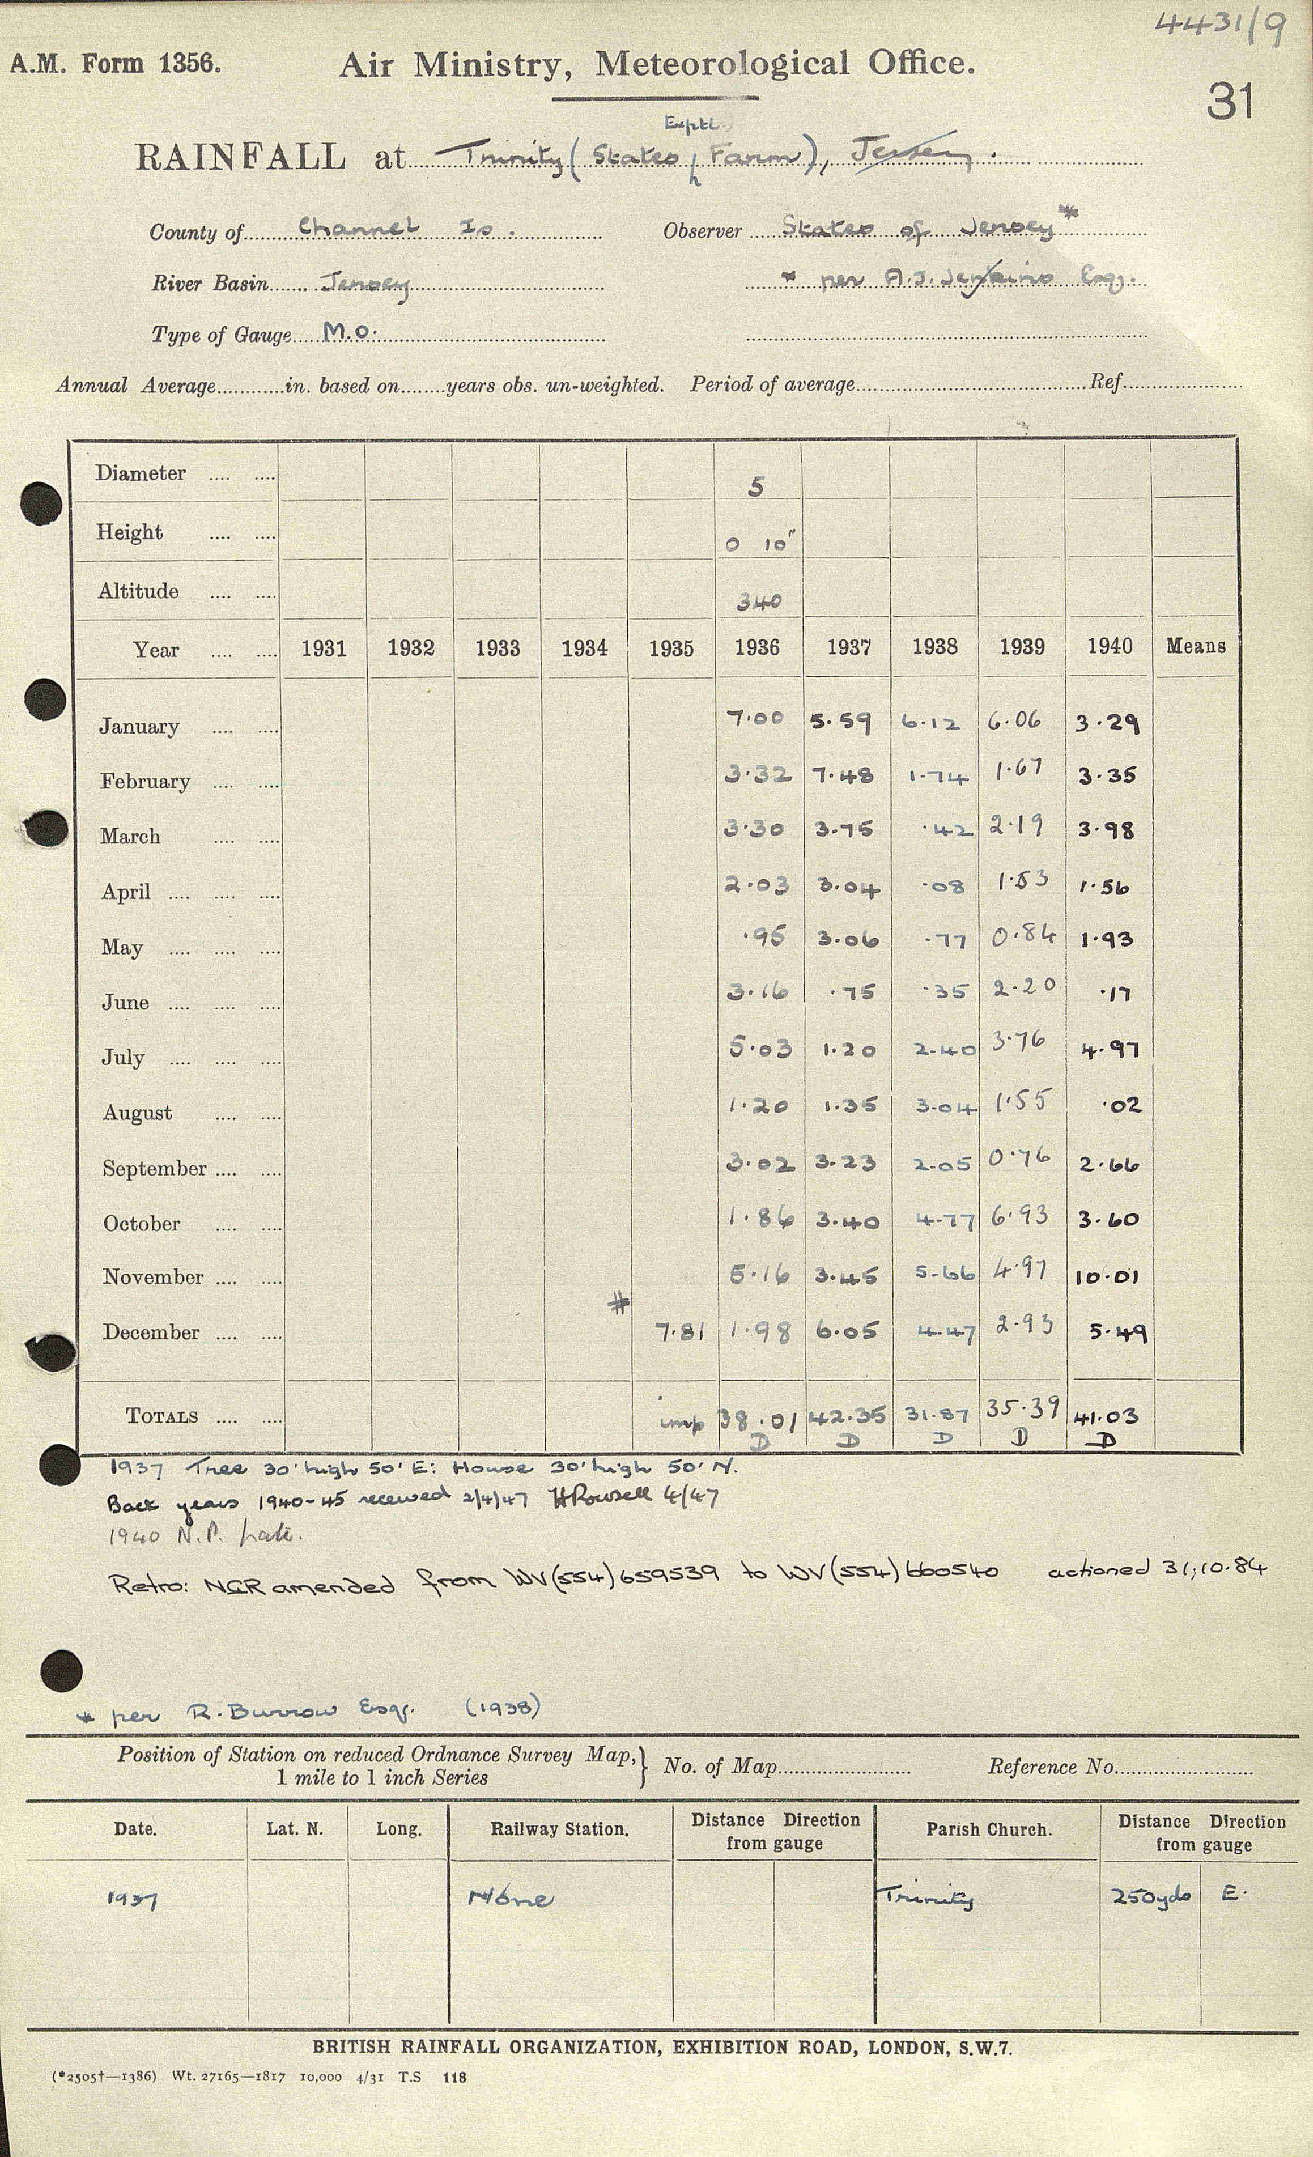 4431/9
A.M. Form 1356. Air Ministry, Meteorological Office.
31
Exptl.
RAINFALL at Trinity (States Farm), Jersey.
County of Channel Is. Observer States of Jersey *
River Basin Jersey * per A.J. Jenkins Esq.
Type of Gauge M.O.
Annual Average in. based on years obs. un-weighted. Period of average Ref.
Diameter 5
Height 0 10"
Altitude 340
Year 1931 1932 1933 1934 1935 1936 1937 1938 1939 1940 Means
January 7.00 5.59 6.12 6.06 3.29
February 3.32 7.48 1.74 1.67 3.35
March 3.30 3.75 .42 2.19 3.98
April 2.03 3.04 .08 1.53 1.56
May .95 3.06 .77 0.84 1.93
June 3.16 .75 .35 2.20 .17
July 5.03 1.20 2.40 3.76 4.97
August 1.20 1.35 3.04 1.55 .02
September 3.02 3.23 2.05 0.76 2.66
October 1.86 3.40 4.77 6.93 3.60
November 5.16 3.45 5.66 4.97 10.01
December # 7.81 1.98 6.05 4.47 2.93 5.49
TOTALS imp 38.01 42.35 31.87 35.39 41.03
D D D D D
1937 Tree 30' high 50' E: House 30' high 50' N.
Back years 1940-45 received 2/4/47 H Rowsell 4/47
1940 N.P. late.
Retro: NGR amended from WV(554)659539 to WV(554)660540 actioned 31.10.84
* per R. Burrow Esq. (1938)
Position of Station on reduced Ordnance Survey Map, } No. of Map Reference No.
1 mile to 1 inch Series
Date. Lat. N. Long. Railway Station. Distance Direction from gauge Parish Church. Distance Direction from gauge
1937 None Trinity 250yds E.
BRITISH RAINFALL ORGANIZATION, EXHIBITION ROAD, LONDON, S.W.7.
(*2505†—1386) Wt. 27165—1817 10,000 4/31 T.S 118